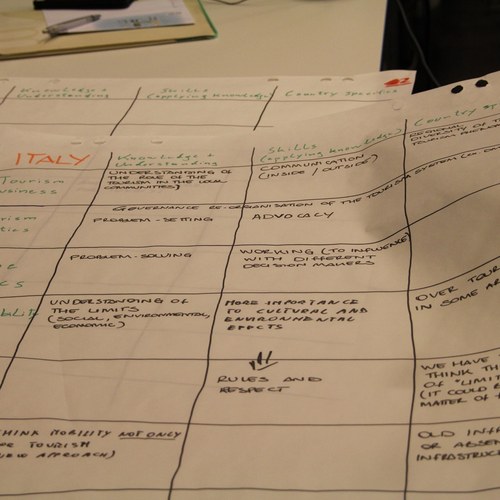 Knowledge +
Understanding
Skills
(applying knowledge)
Country specifics
ITALY
Knowledge +
Understanding
Skills
(applying knowledge)
Country
Tourism
UNDERSTANDING OF
THE ROLE OF THE
TOURISM IN THE LOCAL
COMMUNITIES)
COMMUNICATION
(INSIDE / OUTSIDE)
GOVERNANCE RE-ORGANISATION OF THE TOURISM SYSTEM
PROBLEM-SETTING
ADVOCACY
PROBLEM-SOLVING
WORKING (TO INFLUENCE)
WITH DIFFERENT
DECISION MAKERS
UNDERSTANDING OF
THE LIMITS
(SOCIAL, ENVIRONMENTAL,
ECONOMIC)
MORE IMPORTANCE
TO CULTURAL AND
ENVIRONMENTAL
EFFECTS
OVER TOUR
IN SOME AR
RULES AND
RESPECT
WE HAVE
THINK TH
OF "LIMIT
(IT COULD
MATTER OF
THINK MOBILITY NOT ONLY
TOURISM
APPROACH)
OLD INFR
OR ABSEN
INFRASTRUC